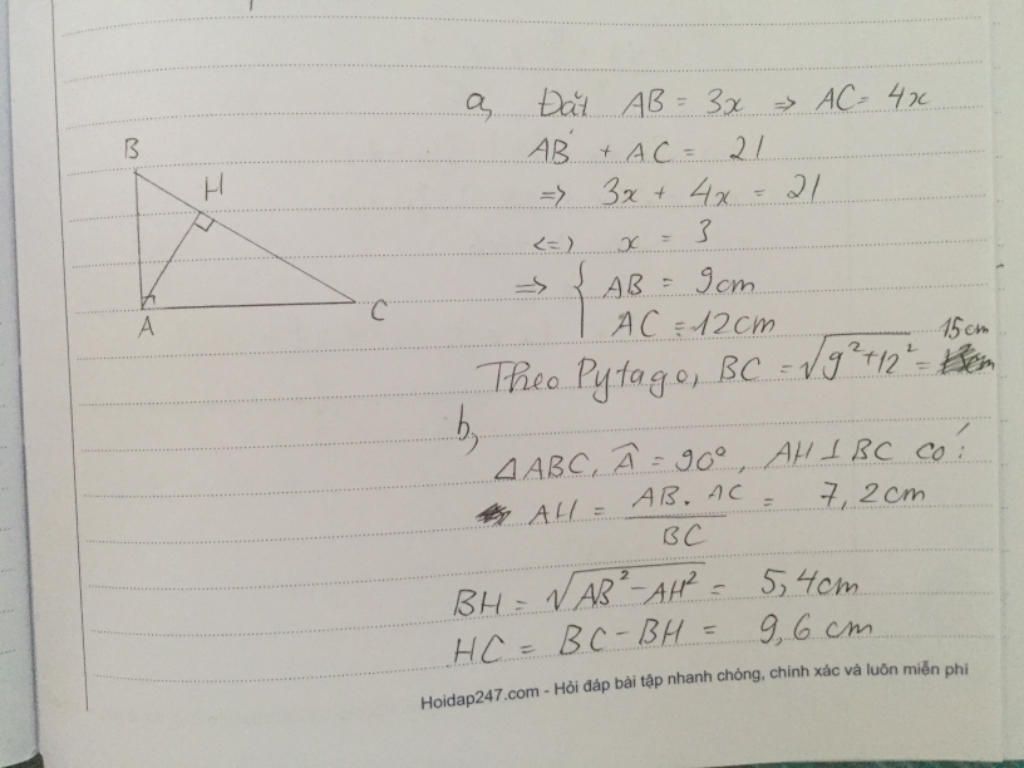 a, Đặt AB = 3x => AC = 4x
AB + AC = 21
=> 3x + 4x = 21
<=> x = 3
=> { AB = 9cm
AC = 12cm
Theo Pytago, BC = √(9² + 12²) = 15cm
b,
△ABC, Â = 90°, AH ⊥ BC có:
AH = AB. AC / BC = 7,2cm
BH = √(AB² - AH²) = 5,4cm
HC = BC - BH = 9,6 cm
B
H
A
C
Hoidap247.com - Hỏi đáp bài tập nhanh chóng, chính xác và luôn miễn phí